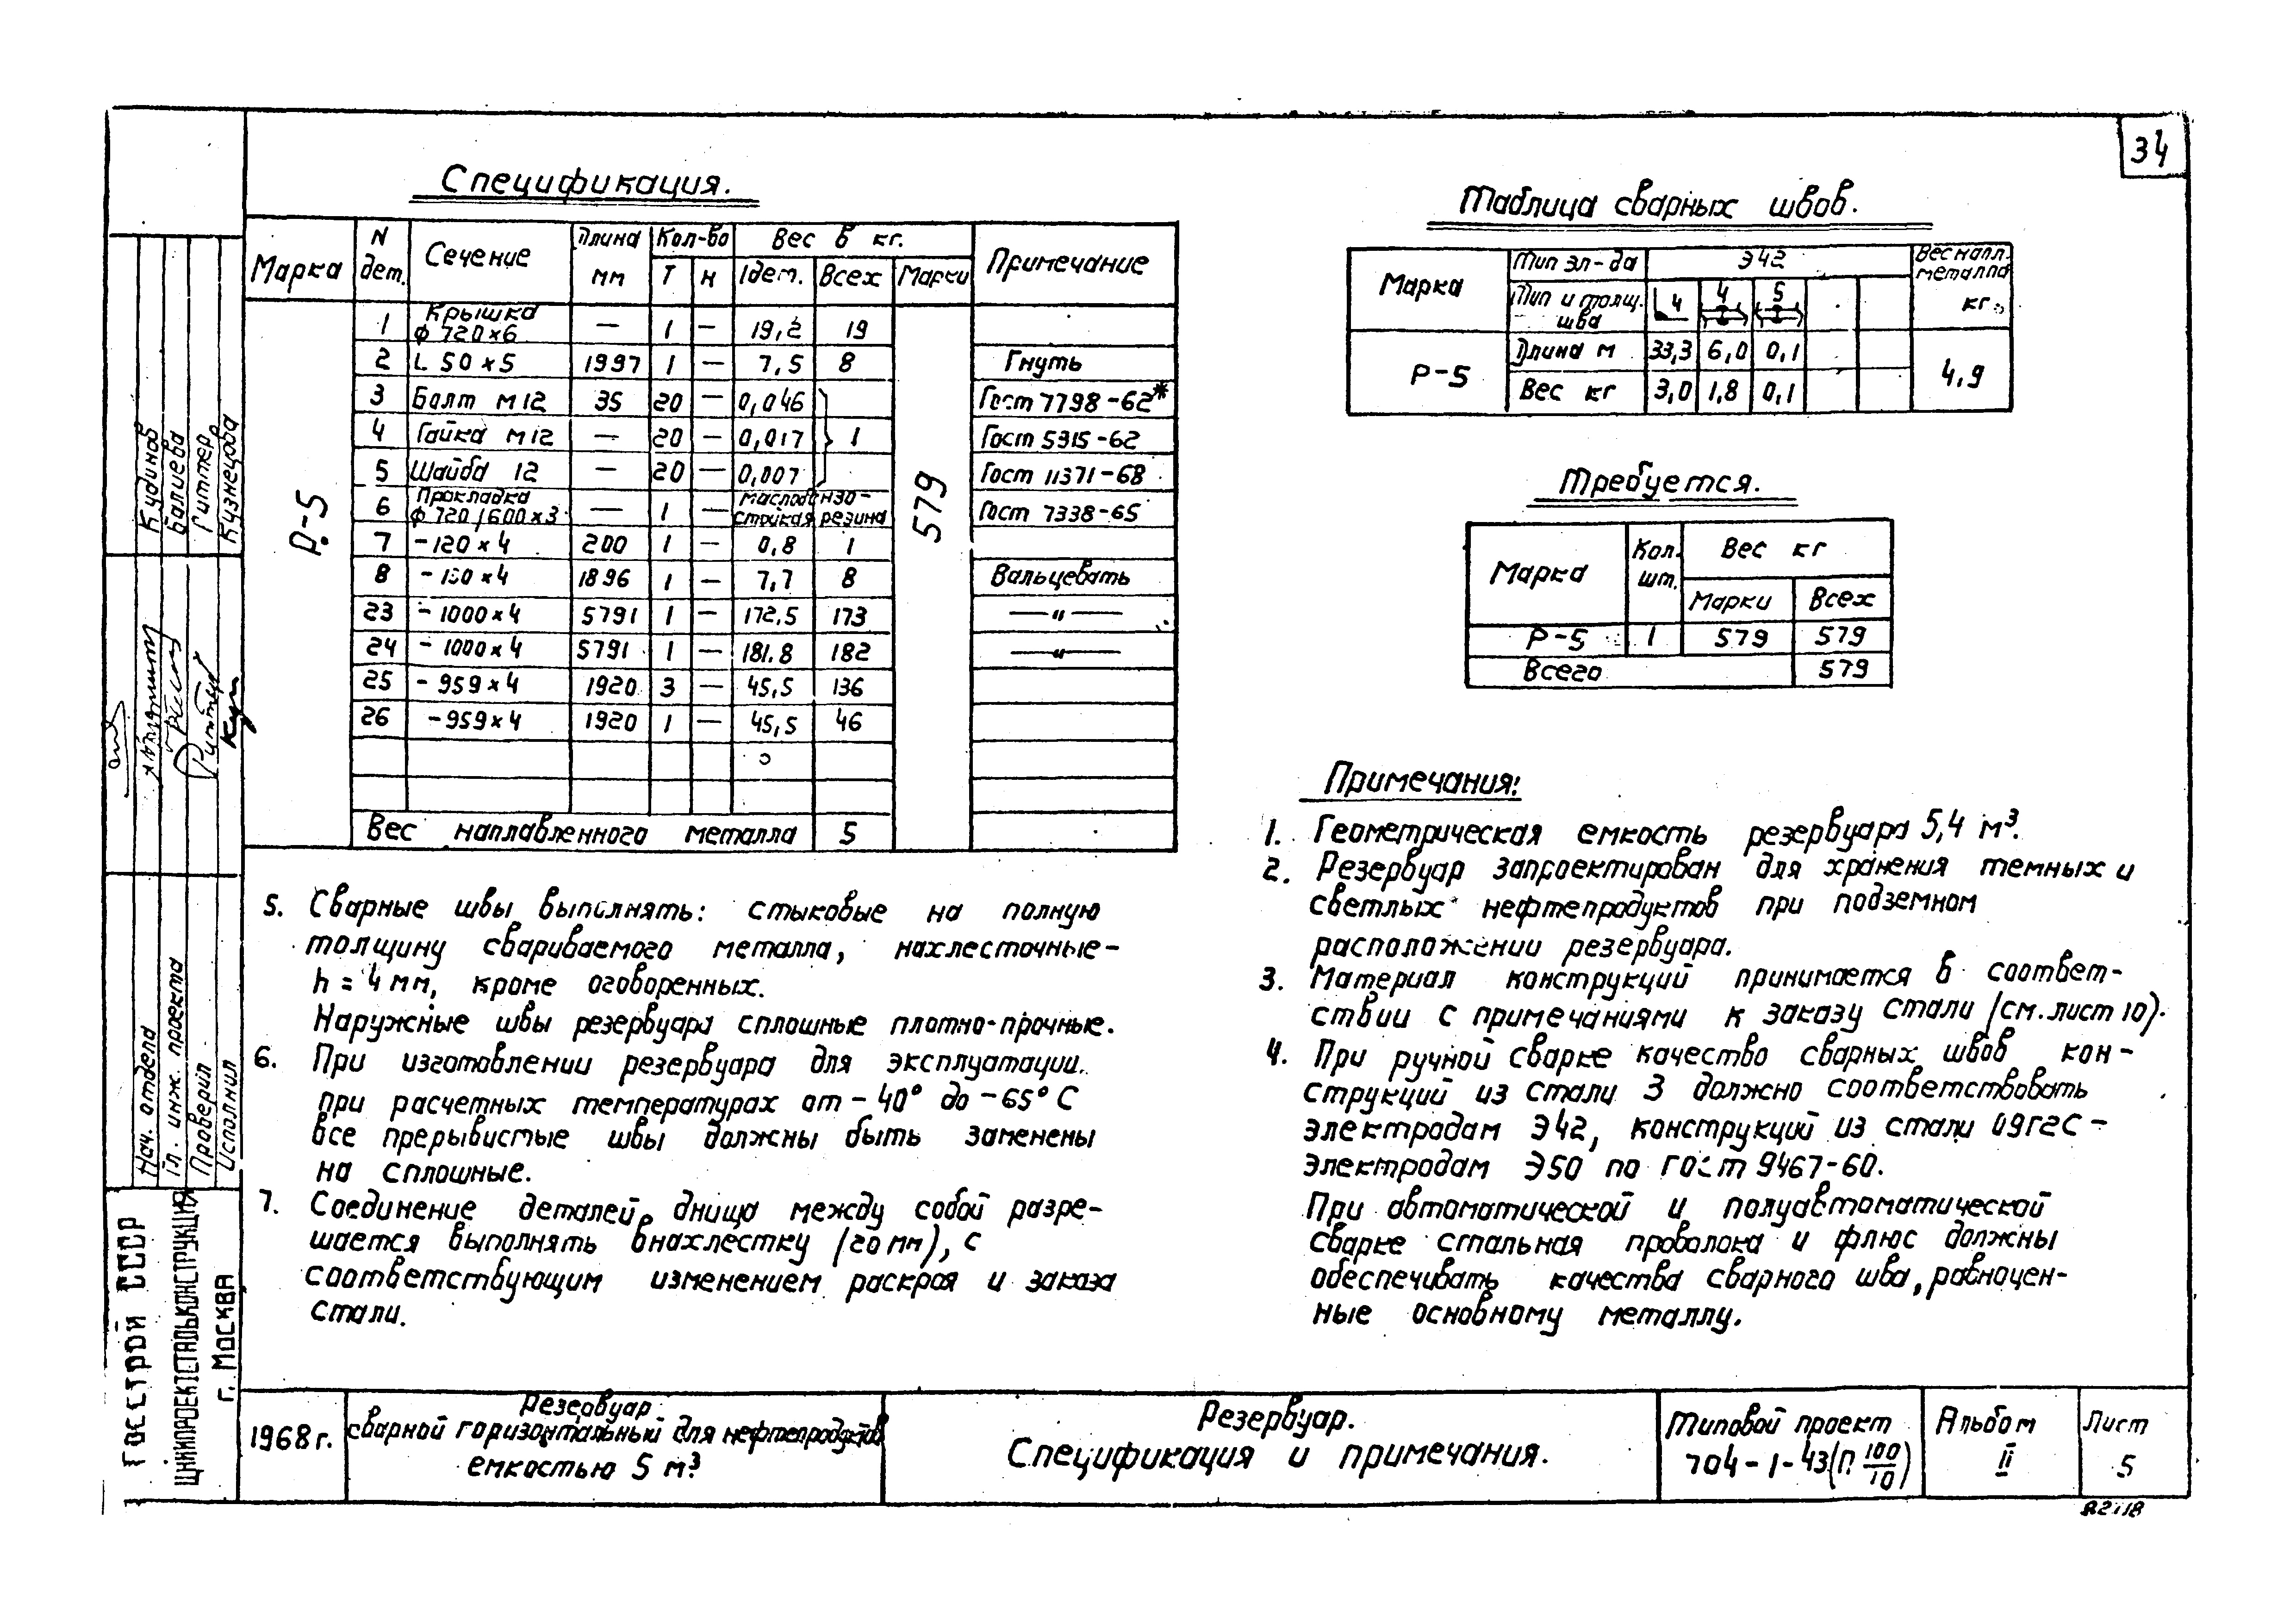 34
Спецификация.
Марка N дет. Сечение Длина мм Кол-во Т Н Вес в кг. 1дет. Всех Марки Примечание
Р-5 579
1 Крышка ф 720х6 — 1 — 19,2 19
2 L 50х5 1997 1 — 7,5 8 Гнуть
3 Болт М12 35 20 — 0,046 Гост 7798-62*
4 Гайка М12 — 20 — 0,017 1 Гост 5915-62
5 Шайба 12 — 20 — 0,007 Гост 11371-68
6 Прокладка ф 720/600х3 — 1 — маслобензо-стойкая резина Гост 7338-65
7 -120х4 200 1 — 0,8 1
8 -130х4 1896 1 — 7,7 8 Вальцевать
23 -1000х4 5791 1 — 172,5 173 —"—
24 -1000х4 5791 1 — 181.8 182 —"—
25 -959х4 1920 3 — 45,5 136
26 -959х4 1920 1 — 45,5 46
Вес наплавленного металла 5
Таблица сварных швов.
Марка Тип эл-да Э42 Вес напл. металла кг.
Тип и толщ. шва 4 4 5
Р-5 Длина м 33,3 6,0 0,1 4,9
Вес кг 3,0 1,8 0,1
Требуется.
Марка Кол. шт. Вес кг
Марки Всех
Р-5 1 579 579
Всего 579
Примечания:
1. Геометрическая емкость резервуара 5,4 м³.
2. Резервуар запроектирован для хранения темных и
светлых нефтепродуктов при подземном
расположении резервуара.
3. Материал конструкций принимается в соответ-
ствии с примечаниями к заказу стали (см. лист 10).
4. При ручной сварке качество сварных швов кон-
струкций из стали 3 должно соответствовать
электродам Э42, конструкций из стали 09Г2С -
электродам Э50 по ГОСТ 9467-60.
При автоматической и полуавтоматической
сварке стальная проволока и флюс должны
обеспечивать качества сварного шва, равноцен-
ные основному металлу.
5. Сварные швы выполнять: стыковые на полную
толщину свариваемого металла, нахлесточные-
h = 4 мм, кроме оговоренных.
Наружные швы резервуара сплошные плотно-прочные.
6. При изготовлении резервуара для эксплуатации
при расчетных температурах от -40° до -65°С
все прерывистые швы должны быть заменены
на сплошные.
7. Соединение деталей днища между собой разре-
шается выполнять внахлестку (20 мм), с
соответствующим изменением раскроя и заказа
стали.
Госстрой СССР
ЦНИИПРОЕКТСТАЛЬКОНСТРУКЦИЯ
г. Москва
Нач. отдела Кудинов
Гл. инж. проекта Валиева
Проверил Гиттер
Исполнил Кузнецова
1968 г.
Резервуар
сварной горизонтальный для нефтепродуктов
емкостью 5 м³.
Резервуар.
Спецификация и примечания.
Типовой проект
704-1-43 (П 100/10)
Альбом
II
Лист
5